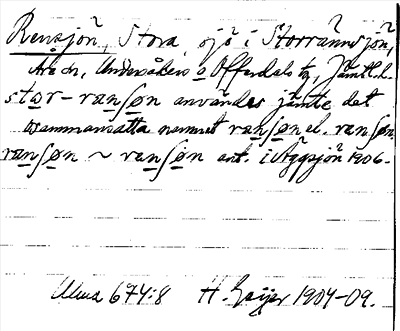 Rensjön, Stora, sjö i Storrännsjön,
Åre sn, Undersåkers o Offerdals tg, Jämtl.
stor-ranʃøn användes jämte det
sammansatta namnet ranʃøn el. ranʃøn.
ranʃøn ~ ranʃøn ant. i Äggsjön 1906.
Ulma 674:8 H. Geijer 1904-09.